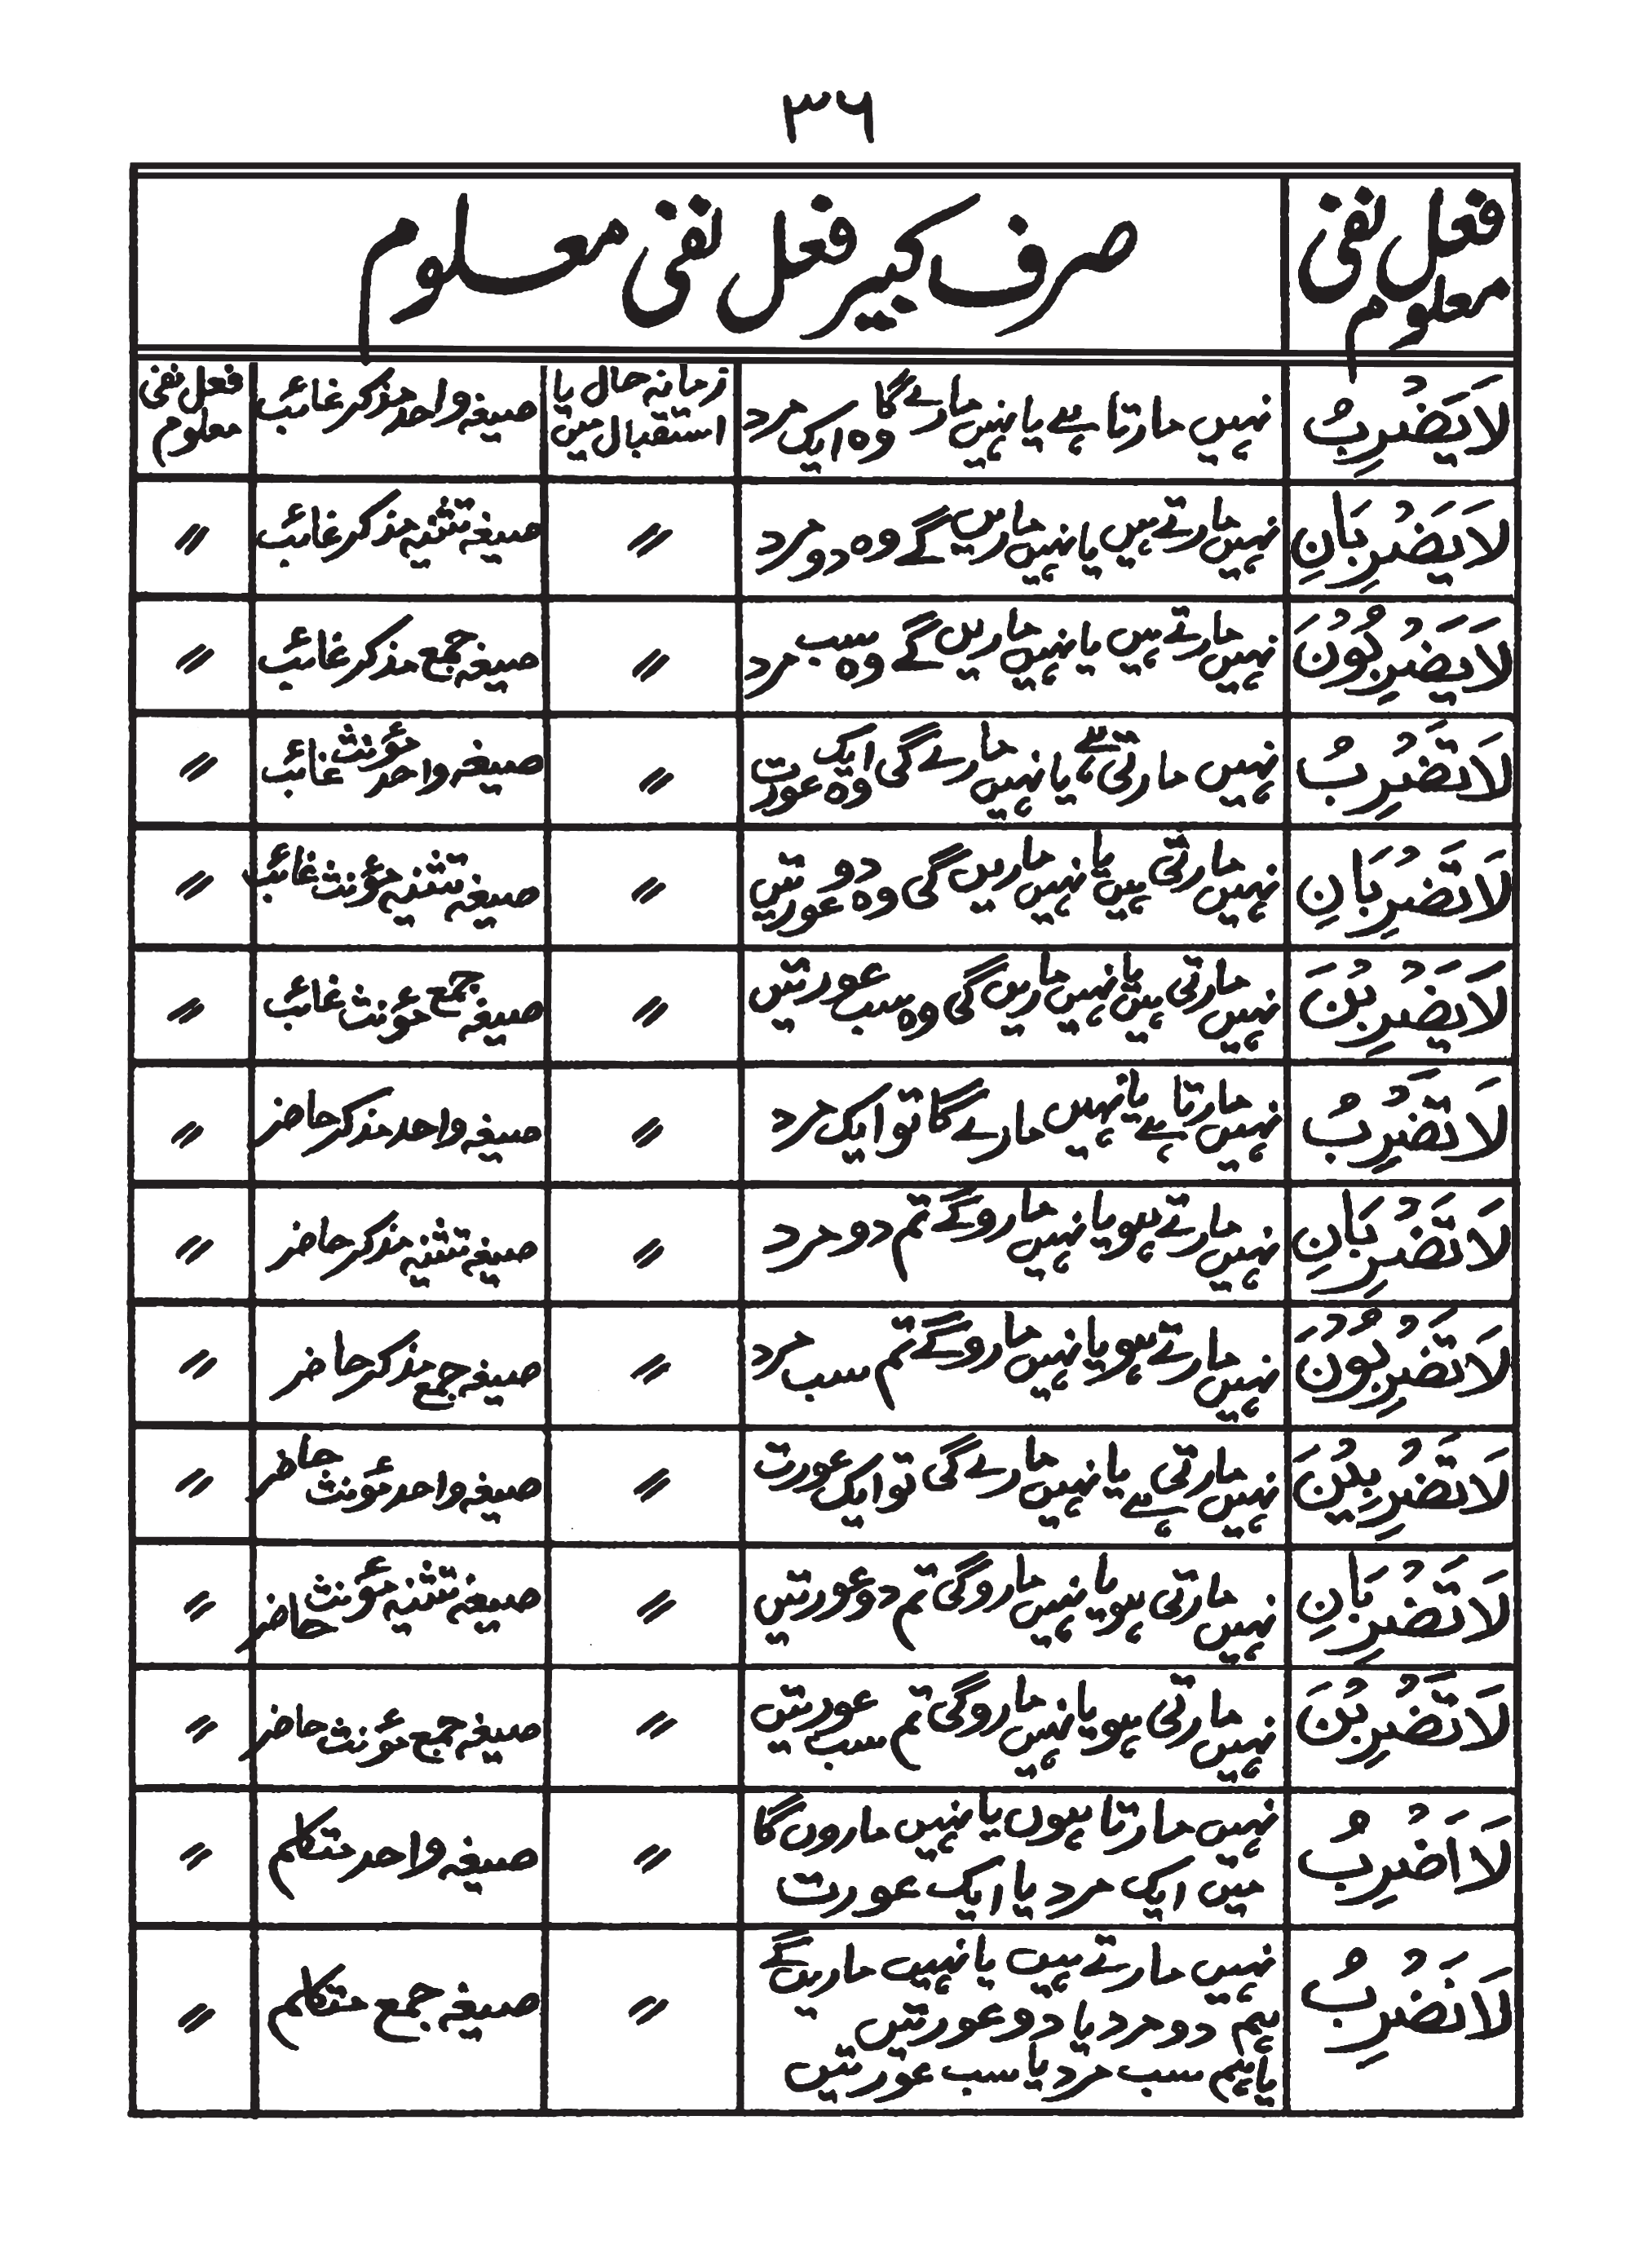 ٣٦
فعل نفی معلوم
صرف کبیر فعل نفی معلوم
لَا يَضْرِبُ نہیں مارتا ہے یا نہیں مارے گا وہ ایک مرد زمانہ حال یا استقبال میں صیغہ واحد مذکر غائب فعل نفی معلوم
لَا يَضْرِبَانِ نہیں مارتے ہیں یا نہیں ماریں گے وہ دو مرد // صیغہ تثنیہ مذکر غائب //
لَا يَضْرِبُوْنَ نہیں مارتے ہیں یا نہیں ماریں گے وہ سب مرد // صیغہ جمع مذکر غائب //
لَا تَضْرِبُ نہیں مارتی ہے یا نہیں مارے گی وہ ایک عورت // صیغہ واحد مؤنث غائب //
لَا تَضْرِبَانِ نہیں مارتی ہیں یا نہیں ماریں گی وہ دو عورتیں // صیغہ تثنیہ مؤنث غائب //
لَا يَضْرِبْنَ نہیں مارتی ہیں یا نہیں ماریں گی وہ سب عورتیں // صیغہ جمع مؤنث غائب //
لَا تَضْرِبُ نہیں مارتا ہے یا نہیں مارے گا تو ایک مرد // صیغہ واحد مذکر حاضر //
لَا تَضْرِبَانِ نہیں مارتے ہو یا نہیں مارو گے تم دو مرد // صیغہ تثنیہ مذکر حاضر //
لَا تَضْرِبُوْنَ نہیں مارتے ہو یا نہیں مارو گے تم سب مرد // صیغہ جمع مذکر حاضر //
لَا تَضْرِبِيْنَ نہیں مارتی ہے یا نہیں مارے گی تو ایک عورت // صیغہ واحد مؤنث حاضر //
لَا تَضْرِبَانِ نہیں مارتی ہو یا نہیں مارو گی تم دو عورتیں // صیغہ تثنیہ مؤنث حاضر //
لَا تَضْرِبْنَ نہیں مارتی ہو یا نہیں مارو گی تم سب عورتیں // صیغہ جمع مؤنث حاضر //
لَا اَضْرِبُ نہیں مارتا ہوں یا نہیں ماروں گا
میں ایک مرد یا ایک عورت // صیغہ واحد متکلم //
لَا نَضْرِبُ نہیں مارتے ہیں یا نہیں ماریں گے
ہم دو مرد یا دو عورتیں
یا ہم سب مرد یا سب عورتیں // صیغہ جمع متکلم //